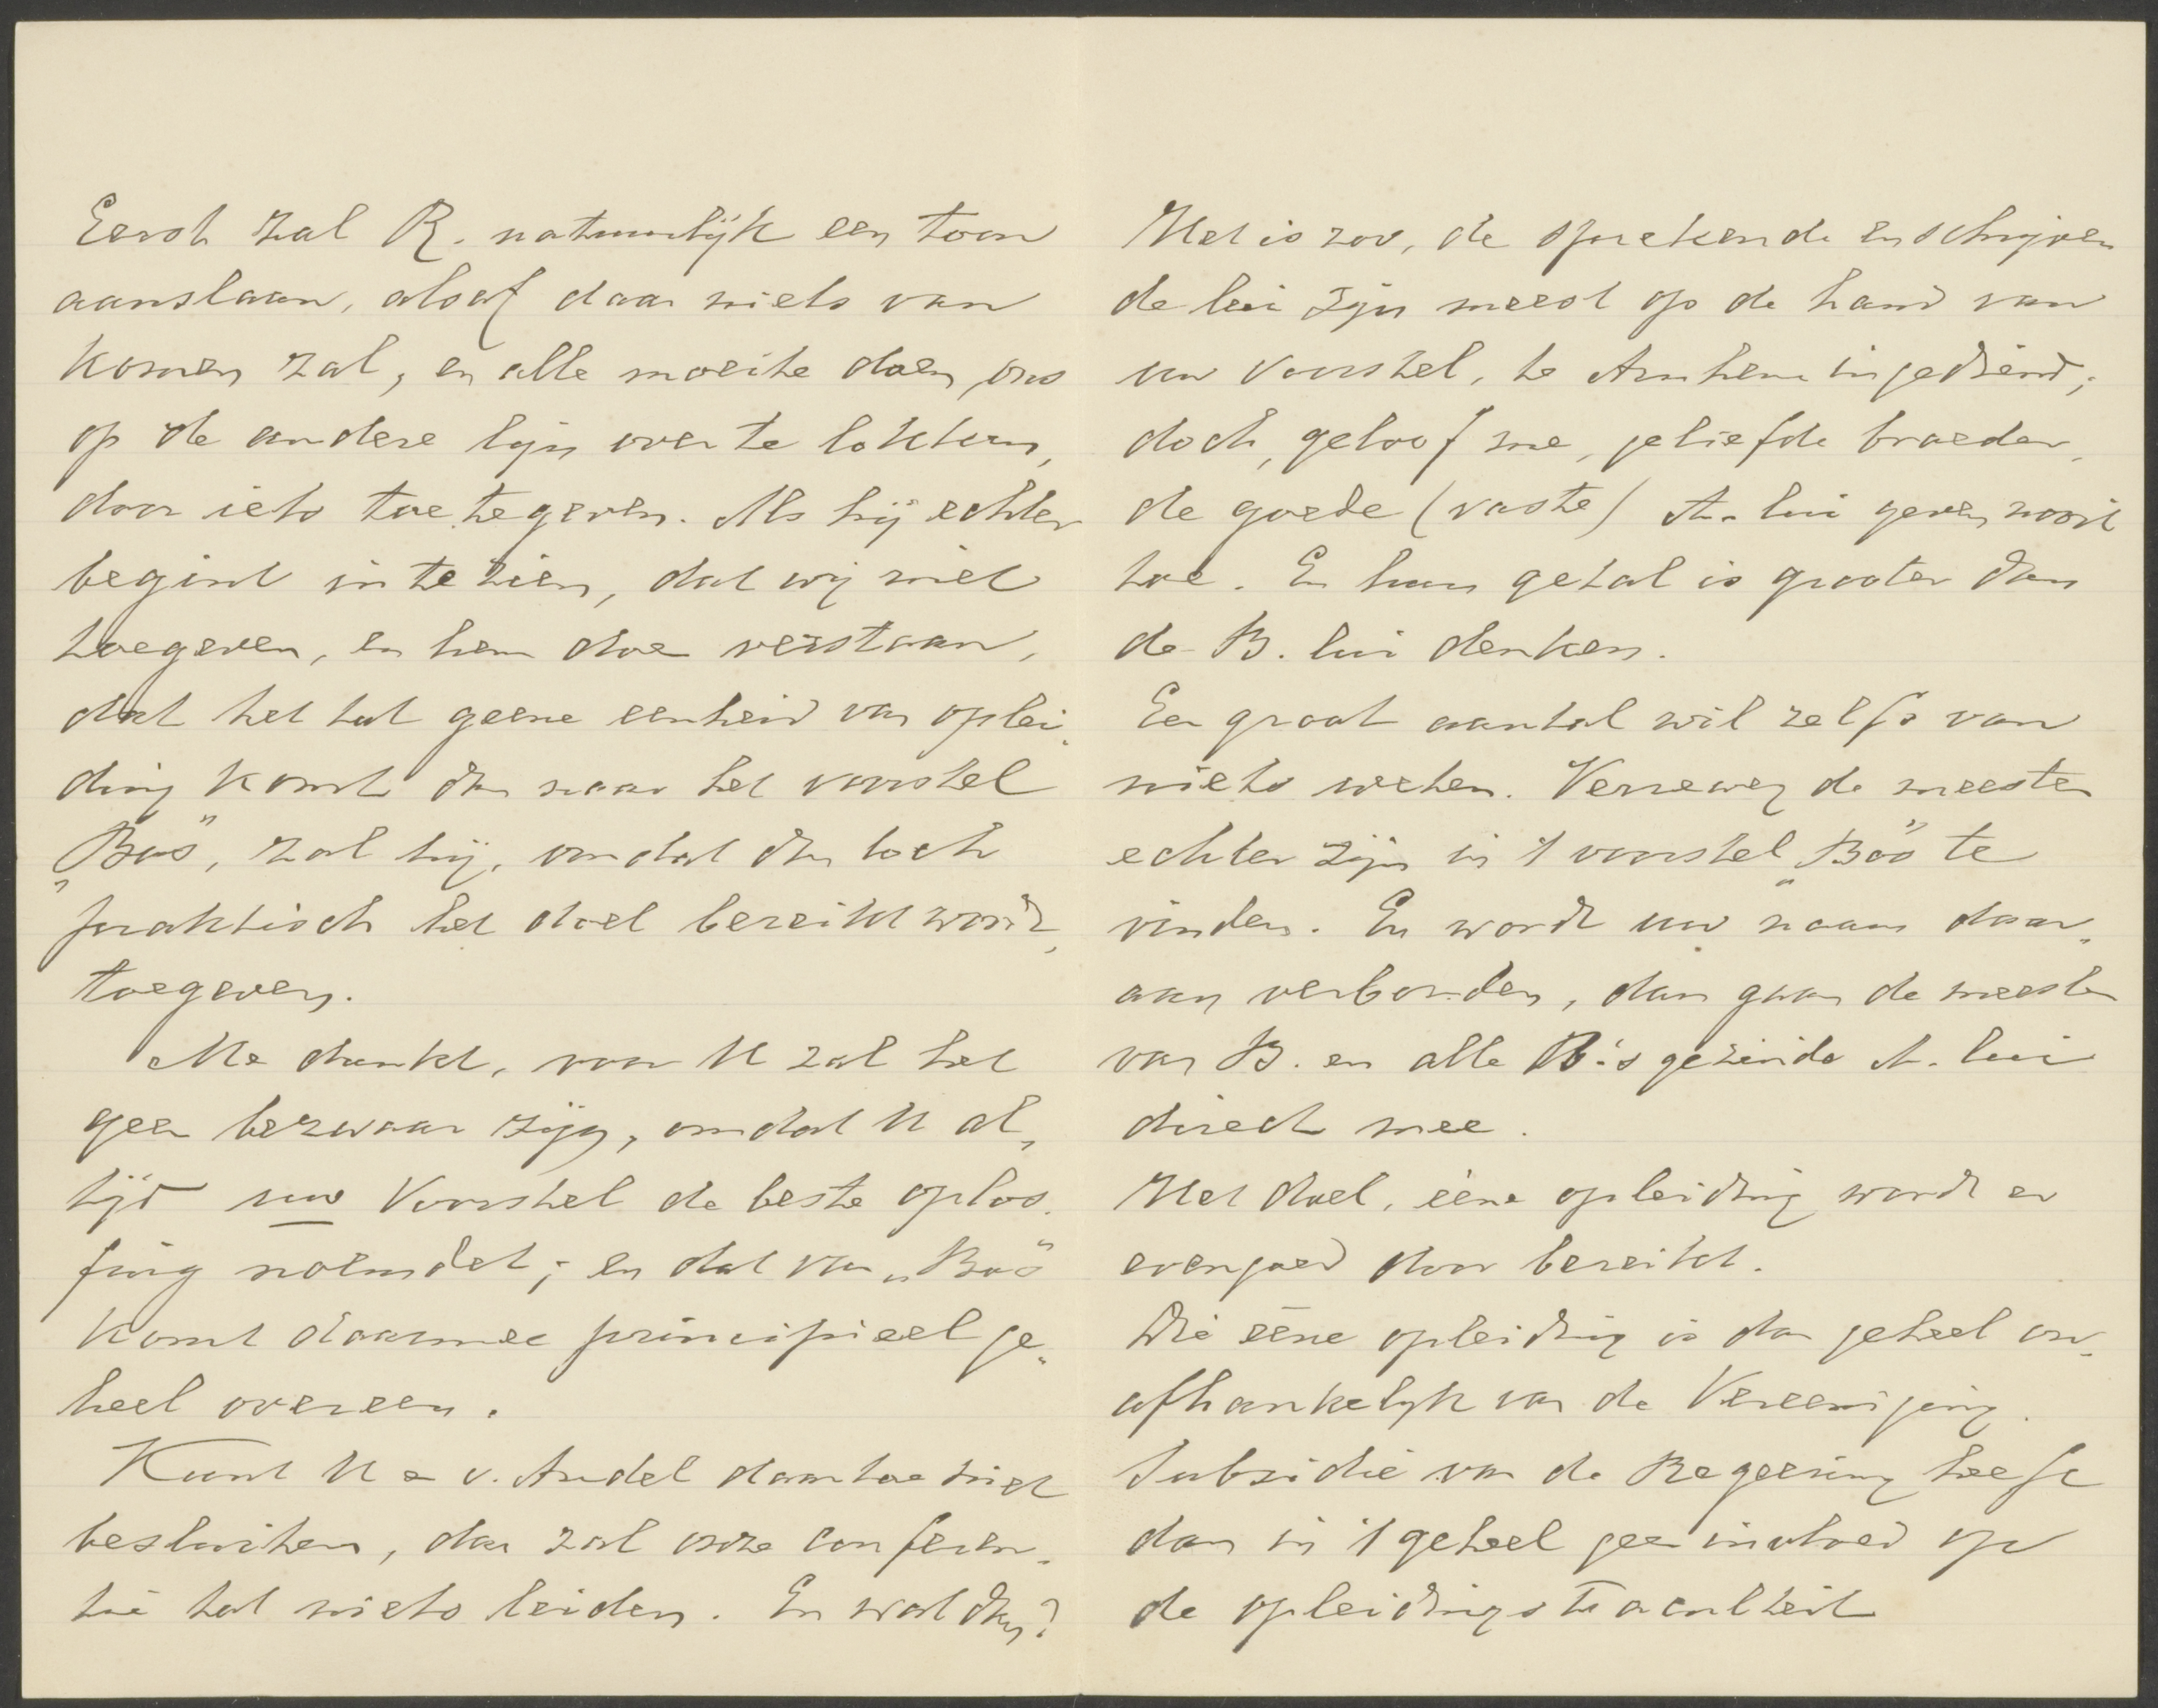 Eerst zal R. natuurlijk een toon
aanslaan, alsof daar niets van
komen zal, en alle moeite doen, ons
op de andere lijn over te lokken,
door iets toe te geven. Als hij echter
begint in te zien, dat wij niet
toegeven, en hem doe verstaan,
dat het tot geene eenheid van oplei„
ding komt dan naar het voorstel
„Bos", zal hij, omdat dan toch
praktisch het doel bereikt wordt,
toegeven.
Me dunkt, voor U zal het
geen bezwaar zijn, omdat U al„
tijd uw Voorstel de beste oplos„
sing noemdet; en dat van „Bos"
komt daarmee principieel ge„
heel overeen.
Kunt U en v. Andel daartoe niet
besluiten, dan zal onze conferen„
tie tot niets leiden. En wat dan?
Het is zoo, de sprekende en schrijven
de lui zijn meest op de hand van
uw Voorstel, te Arnhem ingediend;
doch, geloof me, geliefde broeder,
de goede (vaste) A. lui geven nooit
toe. En hun getal is grooter dan
de B. lui denken.
Een groot aantal wil zelfs van
niets weten. Verreweg de meesten
echter zijn in 't voorstel „Bos" te
vinden. En wordt uw naam daar„
aan verbonden, dan gaan de meesten
van B. en alle B's gezinde A. lui
direct mee.
Het doel, ééne opleiding wordt er
evengoed door bereikt.
Die ééne opleiding is dan geheel on„
afhankelijk van de Vereeniging.
Subsidie van de Regeering heeft
dan in 't geheel geen invloed op
de opleidingsfaculteit